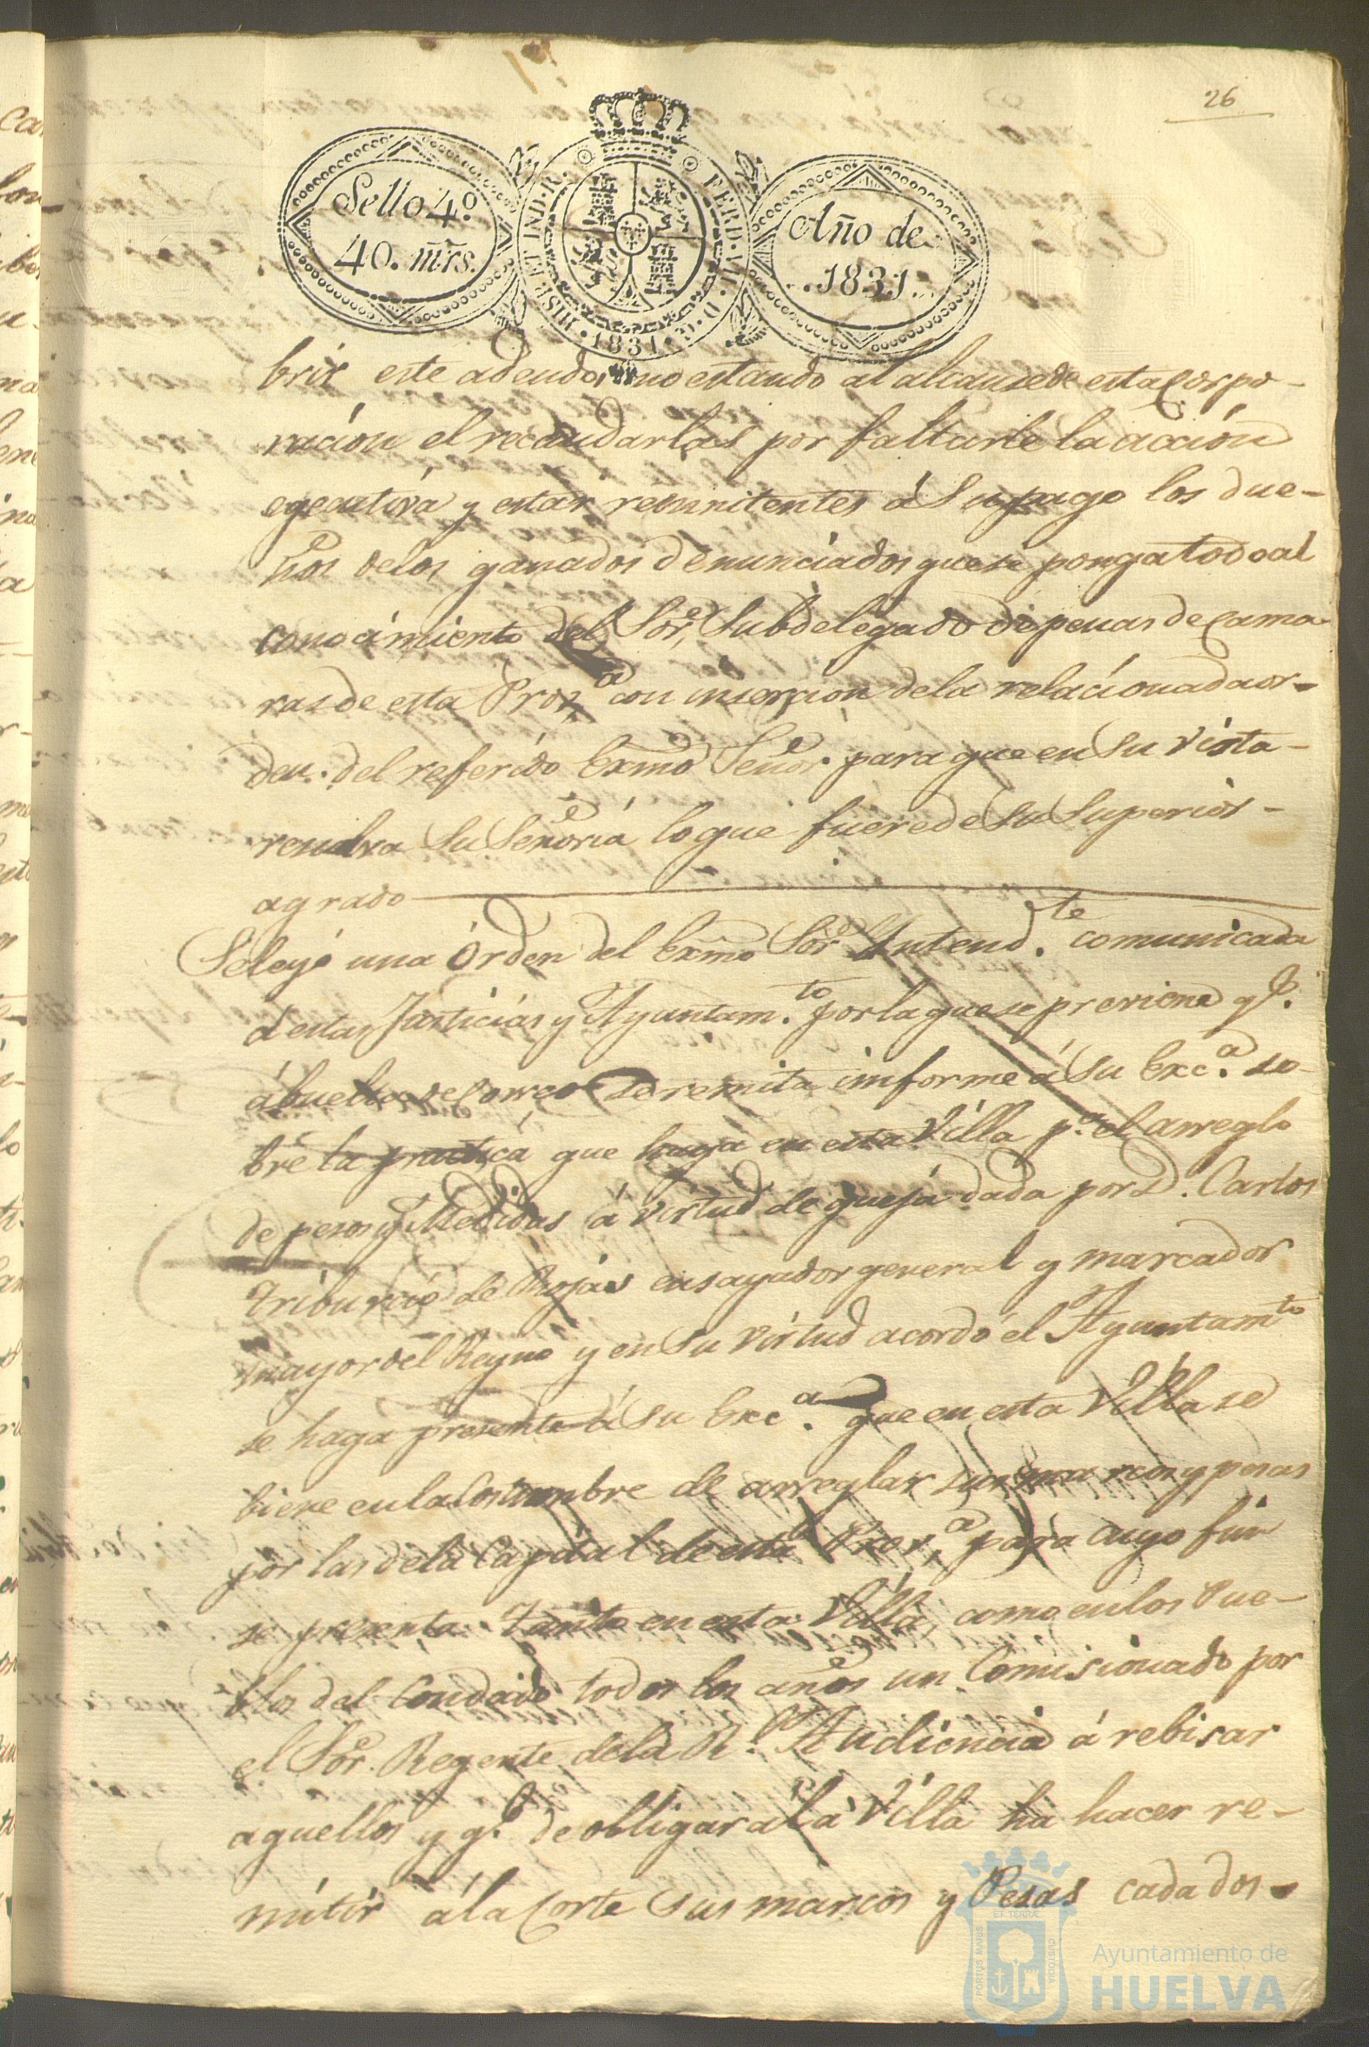 26
Sello 4º
40. mrs.
HISP. ET IND. R.
FERD. VII. D. G.
1831
Año de
1831
brir este adeudo, y no estando al alcanse de esta Corpo-
ración el recaudarlas por faltarle la acción
egecutiva y estar renunitentes á Su pago los due-
ños de los ganados denunciados que se ponga todo al
conocimiento del Sor. Subdelegado de penas de Cama-
ras de esta Prova. con inserción de la relacionada or-
den. del referido Exmo Señor. para que en su vista
resuelva Su Señoría lo que fuere de Su Superior
agrado
Se leyó una Orden del Exmo Sor. Intend.te comunicada
á estas Justicias y Ayuntam.to por la que se previene q.e
á buelta de Correo se remita imforme á Su Exc.a so-
bre la practica que haya en esta Villa p.a el arreglo
de pesos y Medidas á virtud de queja dada por D. Carlos
Tiburcio de Rojas ensayador general y marcador
mayor del Reyno y en Su virtud acordó el Ayuntam.to
se haga presente á Su Exc.a que en esta Villa se
tiene en la Costumbre de arreglar sus marcos y pesas
por las de la Capital de esta Prov.a para cuyo fin
se presenta tanto en esta Villa, como en los Pue-
blos del Condado todos los años un Comisionado por
el Sor. Regente de la R.l Audiencia á rebisar
aquellos y q.e de obligar a la Villa ha hacer re-
mitir á la Corte Sus marcos y Pesas cada dos
PORTUS MARIS
ET TERRAE
CUSTODIA
Ayuntamiento de
HUELVA